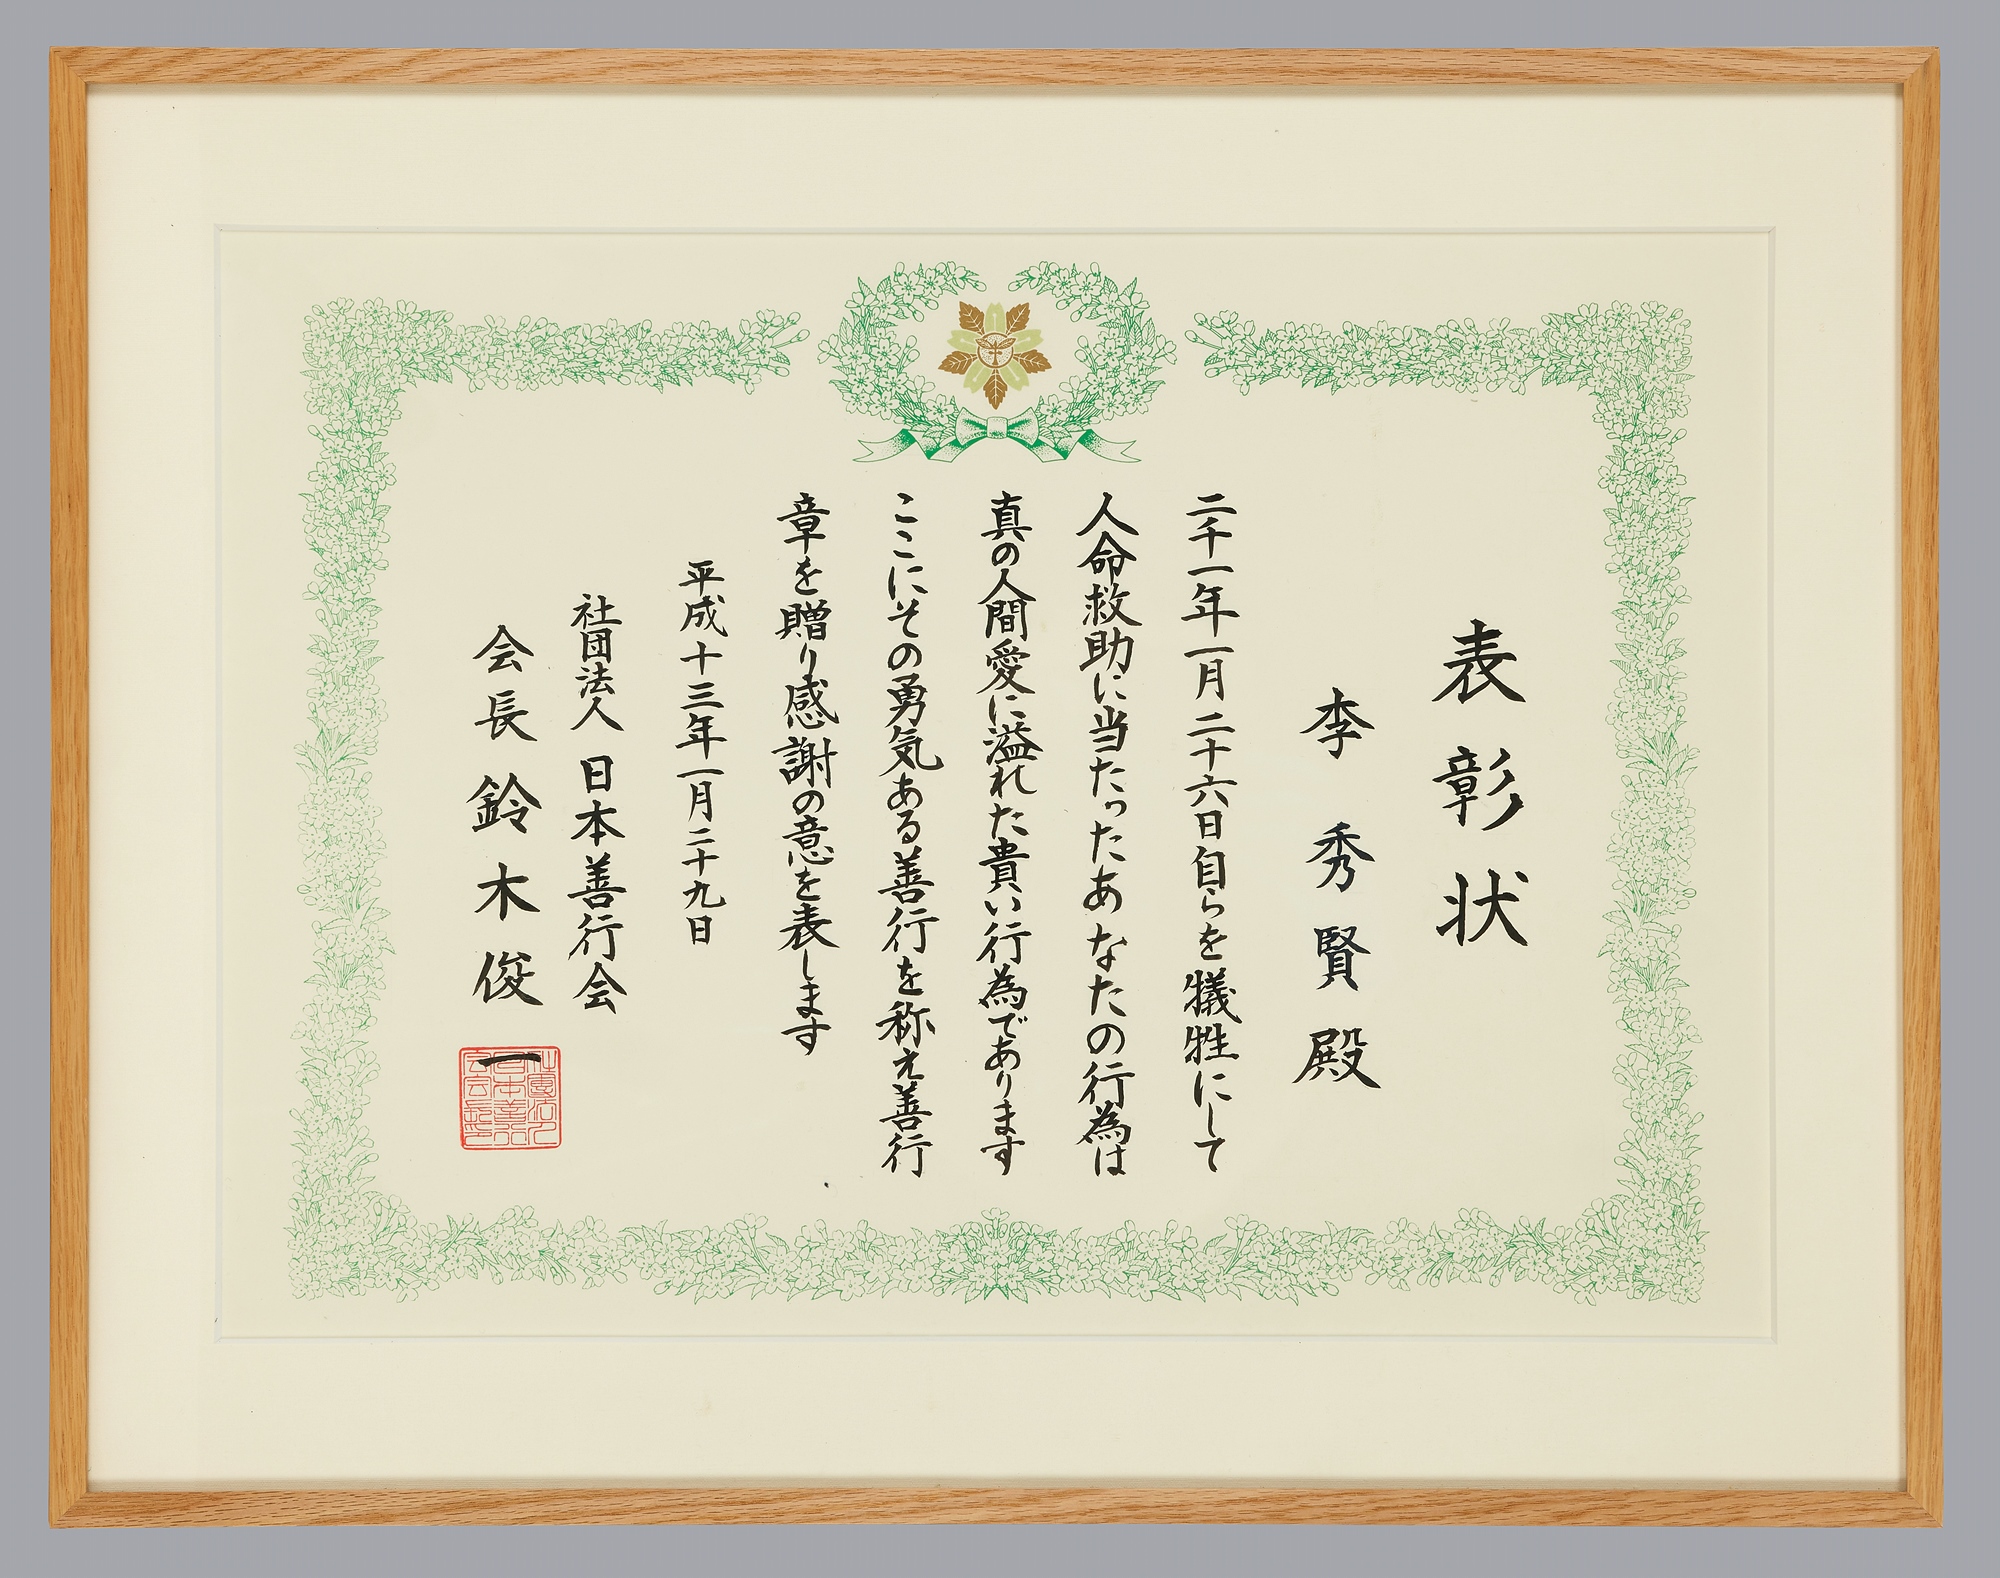 表彰状
李秀賢殿
二千一年一月二十六日自らを犠牲にして
人命救助に当たったあなたの行為は
真の人間愛に溢れた貴い行為であります
ここにその勇気ある善行を称え善行
章を贈り感謝の意を表します
平成十三年一月二十九日
社団法人日本善行会
会長鈴木俊一